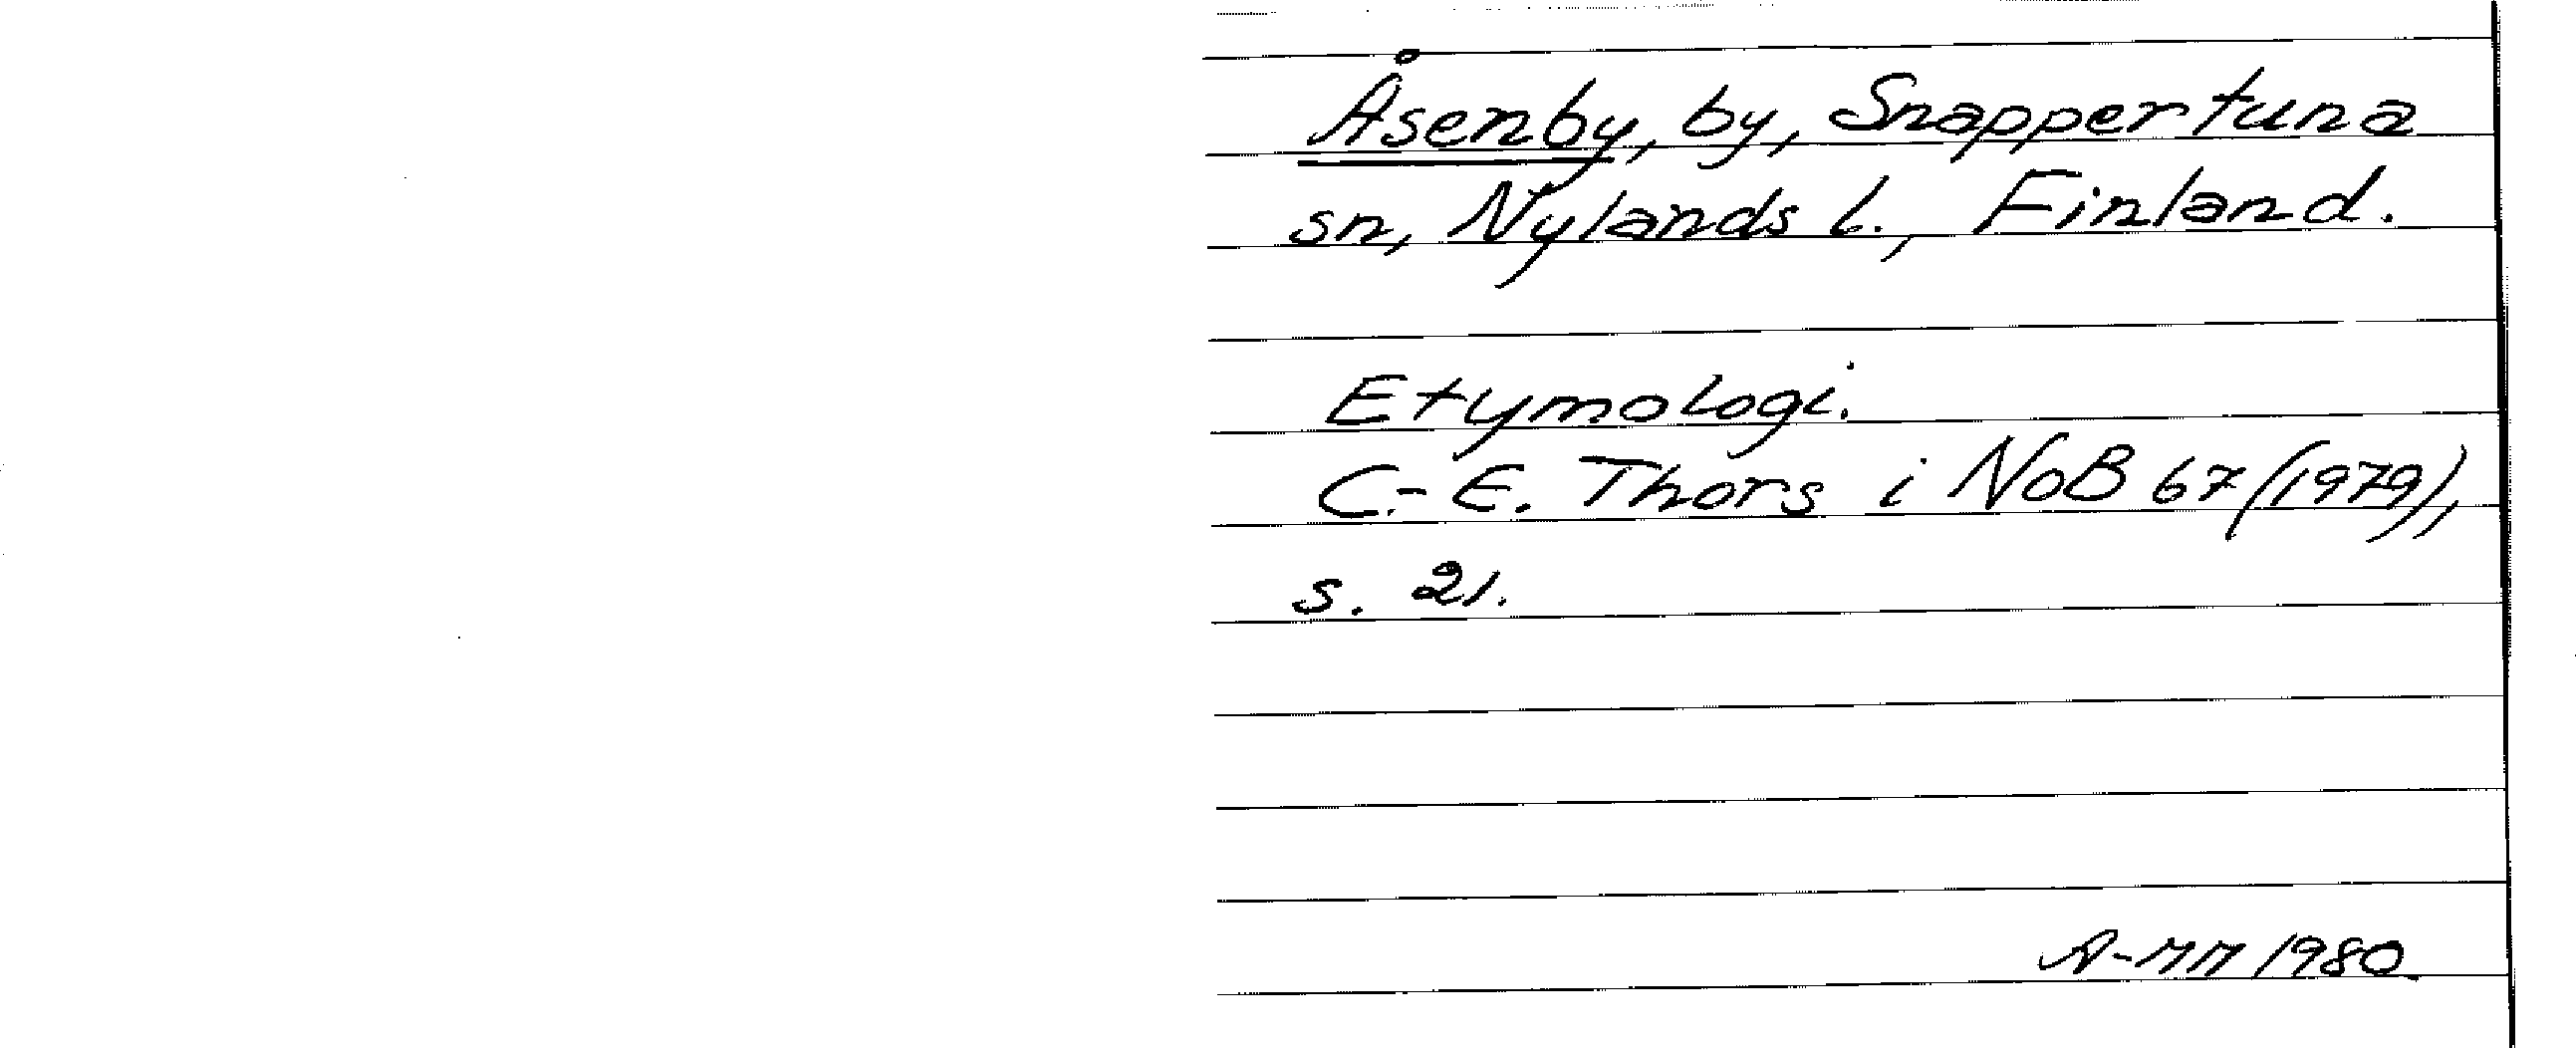 Åsenby, by, Snappertuna
sn, Nylands l., Finland.
Etymologi.
C.-E. Thors i NoB 67 (1979),
s. 21.
A-MM 1980